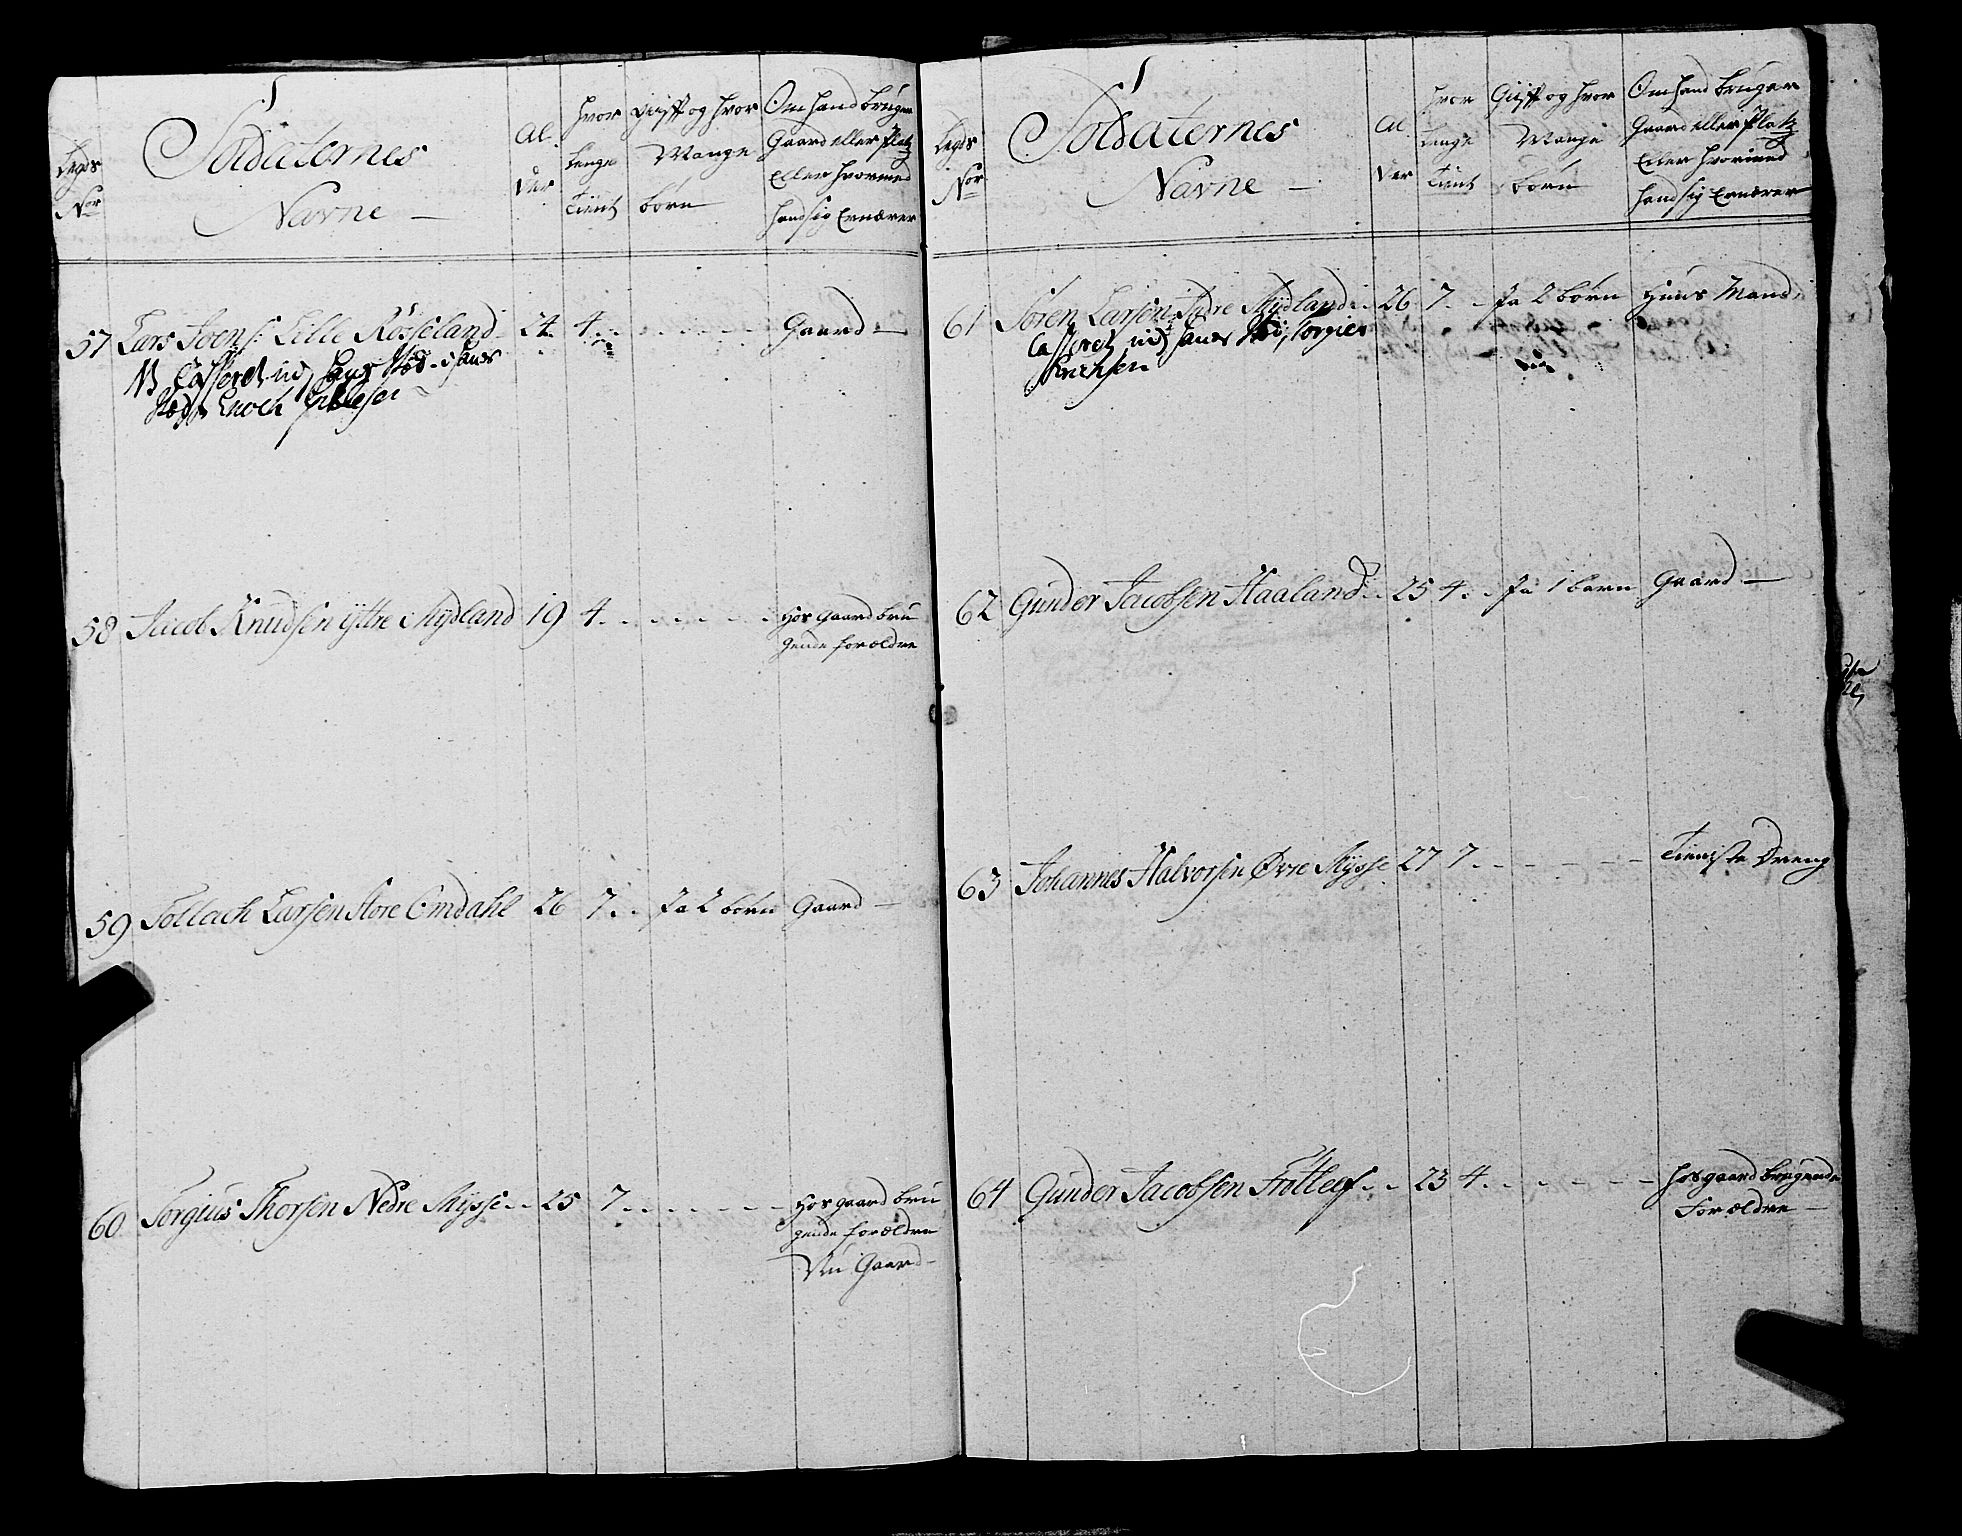 Legds
Nor
Soldaternes
Navne
Al.
der
Hvor
Lenge
Tient
Gift og Hvor
Mange
børn
Om Hand bruger
Gaard eller Platz
Eller Hvormed
Hand sig Ernærer
57 Lars Svens: Lille Rosseland 24 4 Gaard
NB Casseret i Hans
Sted Enoch
58 Jacob Knudsen ytre Mydland 19 4 Hos gaard bru
gende forældre
59 Tollach Larsen Store Omdahl 26 7 Ja 2 børn Gaard
60 Torgius Thorsen Nedre Mysse 25 7 Hos gaard bru
gende forældre
Nu Gaard
Legds
Nor
Soldaternes
Navne
Al.
der
Hvor
Lenge
Tient
Gift og Hvor
Mange
børn
Om Hand bruger
Gaard eller Platz
Eller Hvormed
Hand sig Ernærer
61 Søren Larsen Indre Mydland 26 7 Ja 2 børn Huus Mand
Casseret Hans
62 Gunder Jacobsen Haaland 25 4 Ja 1 barn Gaard
63 Johannes Halvorsen Øvre Mysse 27 7 Tieniste Dreng
64 Gunder Jacobsen 23 4 Hos gaard brugende
Forældre